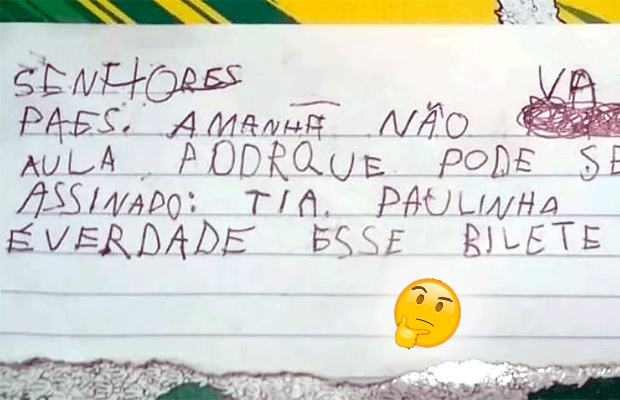 SENHORES VA
PAES. AMANHÃ NÃO
AULA PODRQUE PODE SE
ASSINADO: TIA. PAULINHA
É VERDADE ESSE BILETE